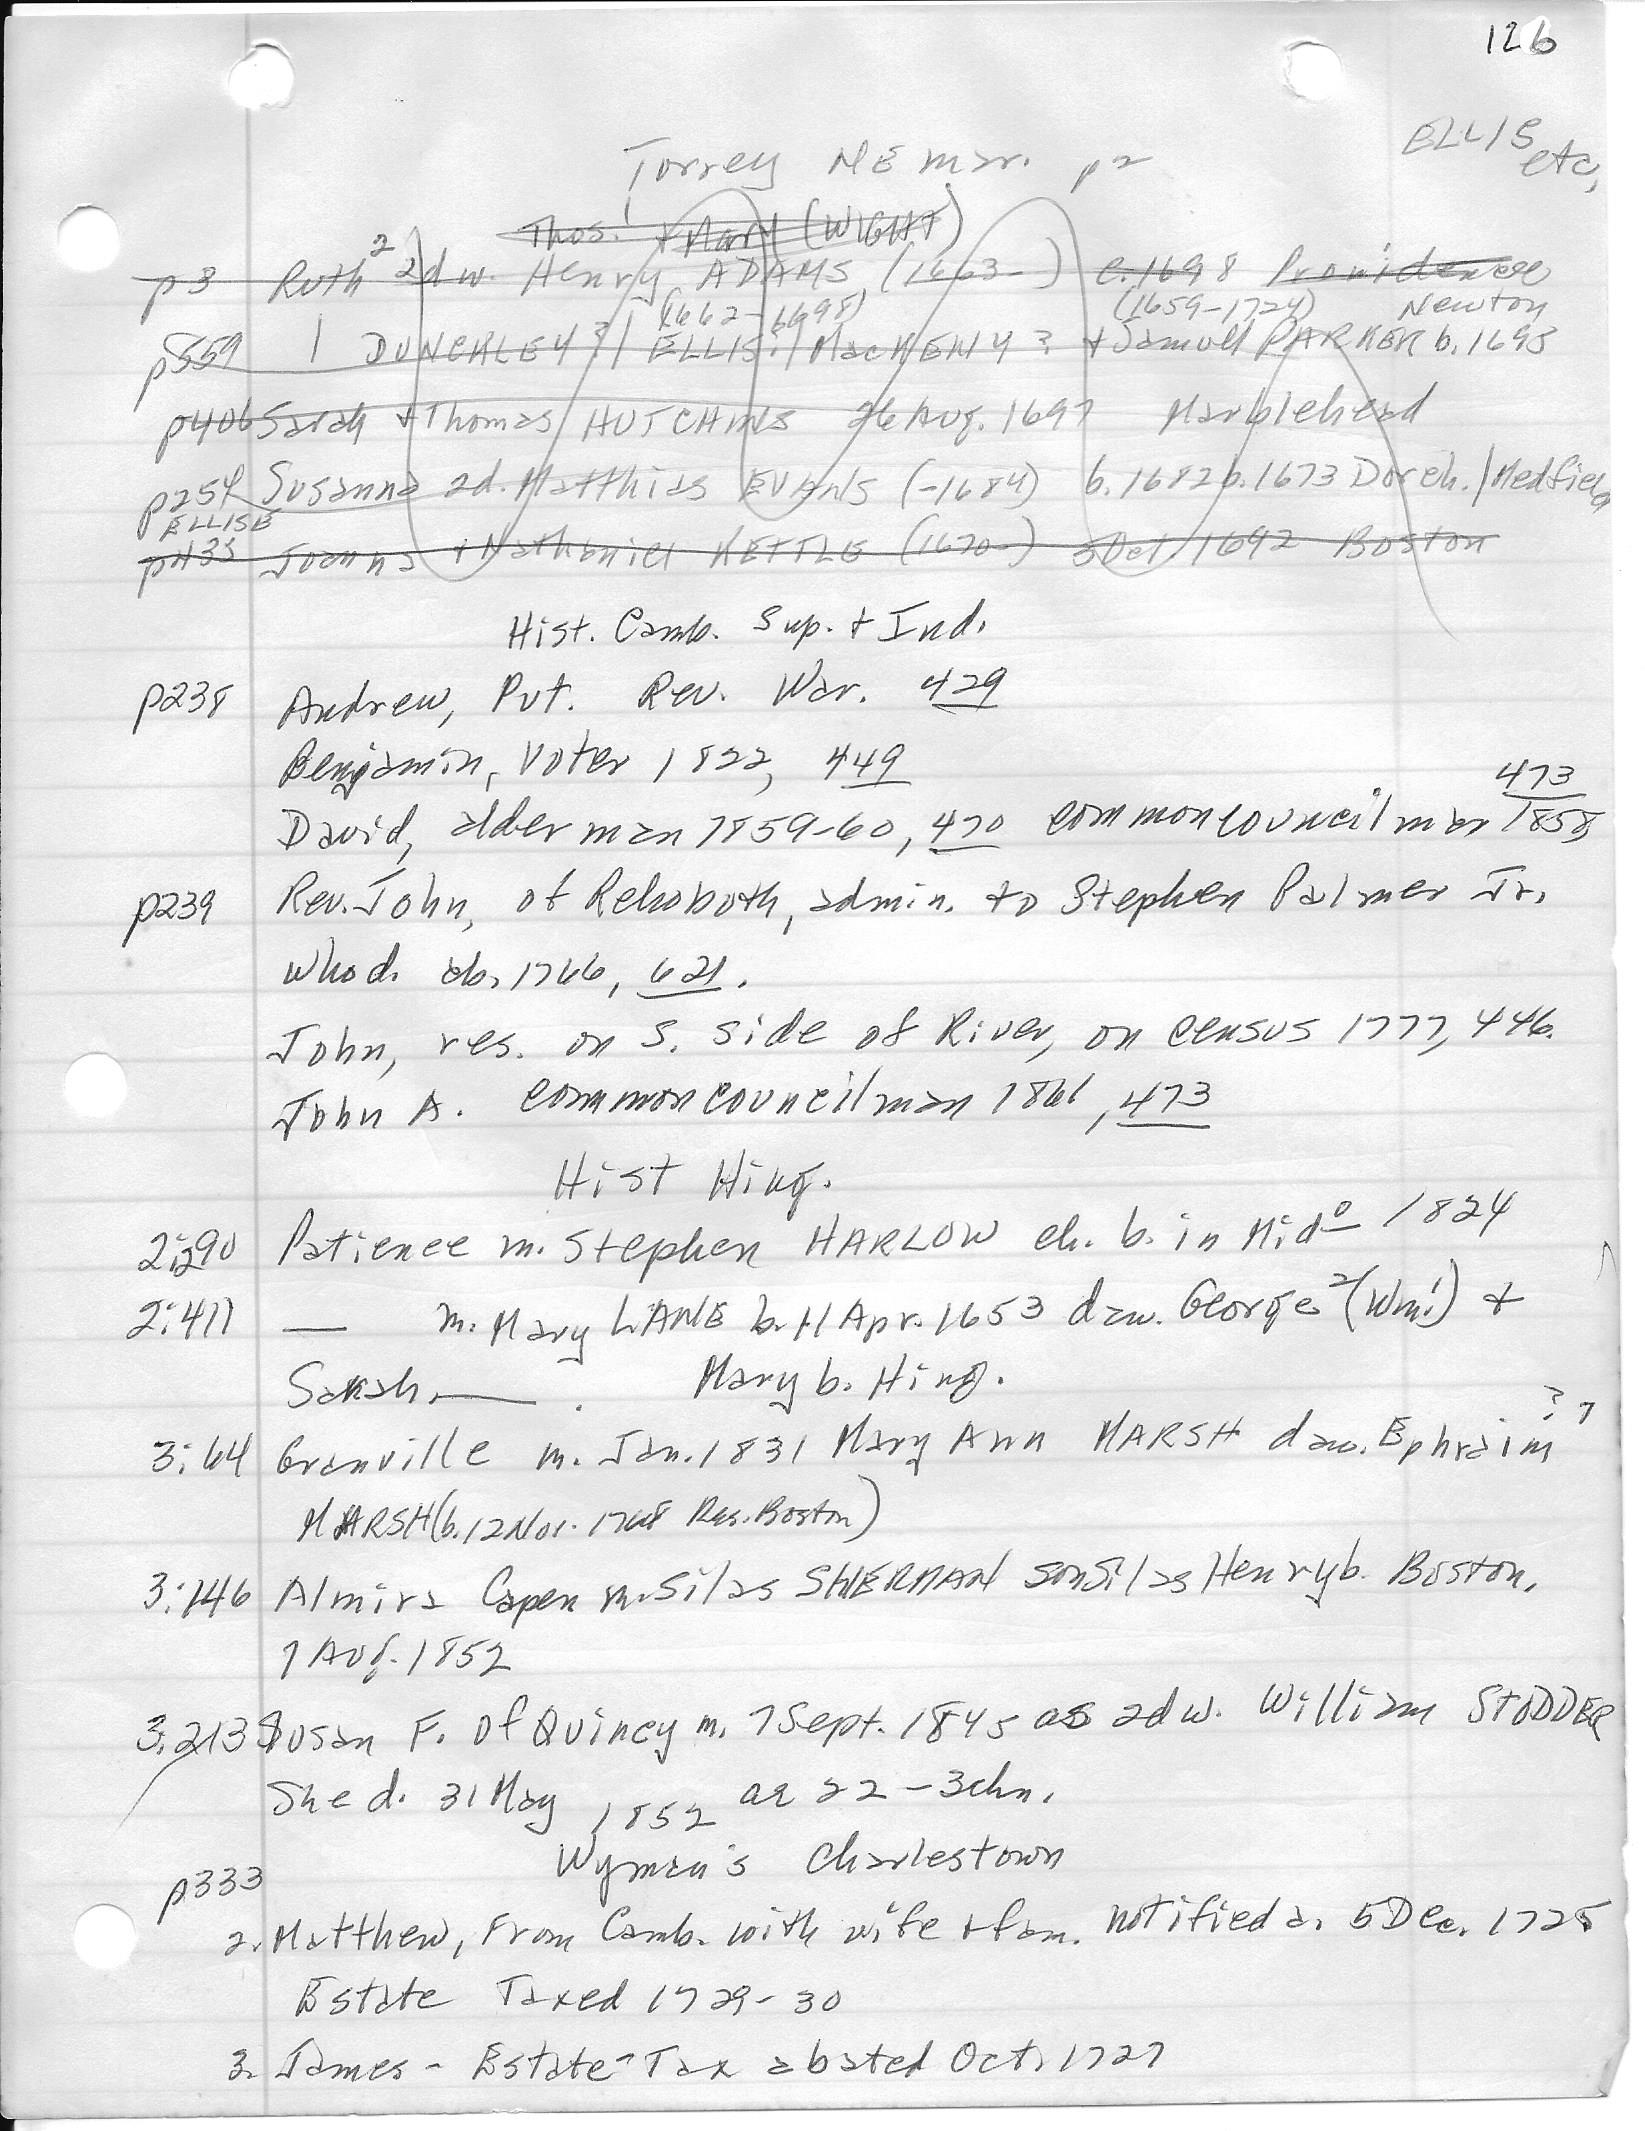 126
ELLIS
etc,
Torrey NE mar. p2
Thos.1 + Mary (WIGHT)
p3 Ruth2 2d w. Henry ADAMS (1663- ) c.1698 Providence
(1662-1698) (1659-1724) Newton
p559 | DUNCKLEY?| ELLIS?/MacKENNY? + Samuel PARKER b. 1693
p406 Sarah + Thomas HUTCHINS 26 Aug. 1697 Marblehead
p254 Susanna 2d. Matthias EVANS (-1684) b. 1682 b. 1673 Dorch./Medfield
ELLISE
p433 Joanna + Nathaniel KETTLE (1670-) 3 Oct 1692 Boston
Hist. Camb. Sup. + Ind.
p238 Andrew, Pvt. Rev. War. 429
Benjamin, Voter 1822, 449
473
David, alderman 1859-60, 470 common councilman 1858
p239 Rev. John, of Rehoboth, admin. to Stephen Palmer Jr.
who d. ab. 1766, 621.
John, res. on S. side of River, on census 1777, 446.
John A. common councilman 1861, 473
Hist Hing.
2:290 Patience m. Stephen HARLOW ch. b. in Mido 1824
2:411 — m. Mary LANE b. 11 Apr. 1653 dau. George2 (Wm.1) +
Sarah — . Mary b. Hing.
3:64 Granville m. Jan. 1831 Mary Ann MARSH dau. Ephraim ? 7
MARSH (b. 12 Nov. 1768 Res. Boston)
3:146 Almira Capen m. Silas SHERMAN son Silas Henry b. Boston,
7 Aug. 1852
3:213 Susan F. of Quincy m. 7 Sept. 1845 as 2d w. William STODDER
She d. 31 May 1852 ae 22 - 3 chn.
Wyman's Charlestown
p333
2. Matthew, From Camb. with wife + fam. notified a. 5 Dec. 1725
Estate Taxed 1729-30
3. James - Estate - Tax abated Oct. 1727